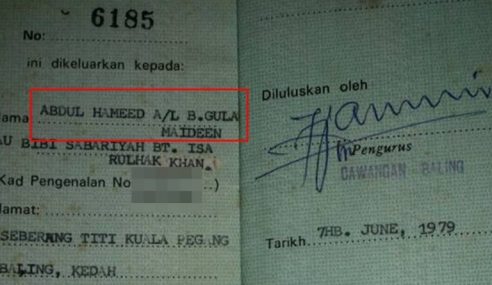 6185
No:
ini dikeluarkan kepada:
ama ABDUL HAMEED A/L B.GULA
MAIDEEN
AU BIBI SABARIYAH BT. ISA
ROLHAK KHAN.
Kad Pengenalan No ..)
lamat:
SEBERANG TITI KUALA PEGANG
BALING, KEDAH
Diluluskan oleh
Pengurus
CAWANGAN BALING
Tarikh 7HB. JUNE, 1979